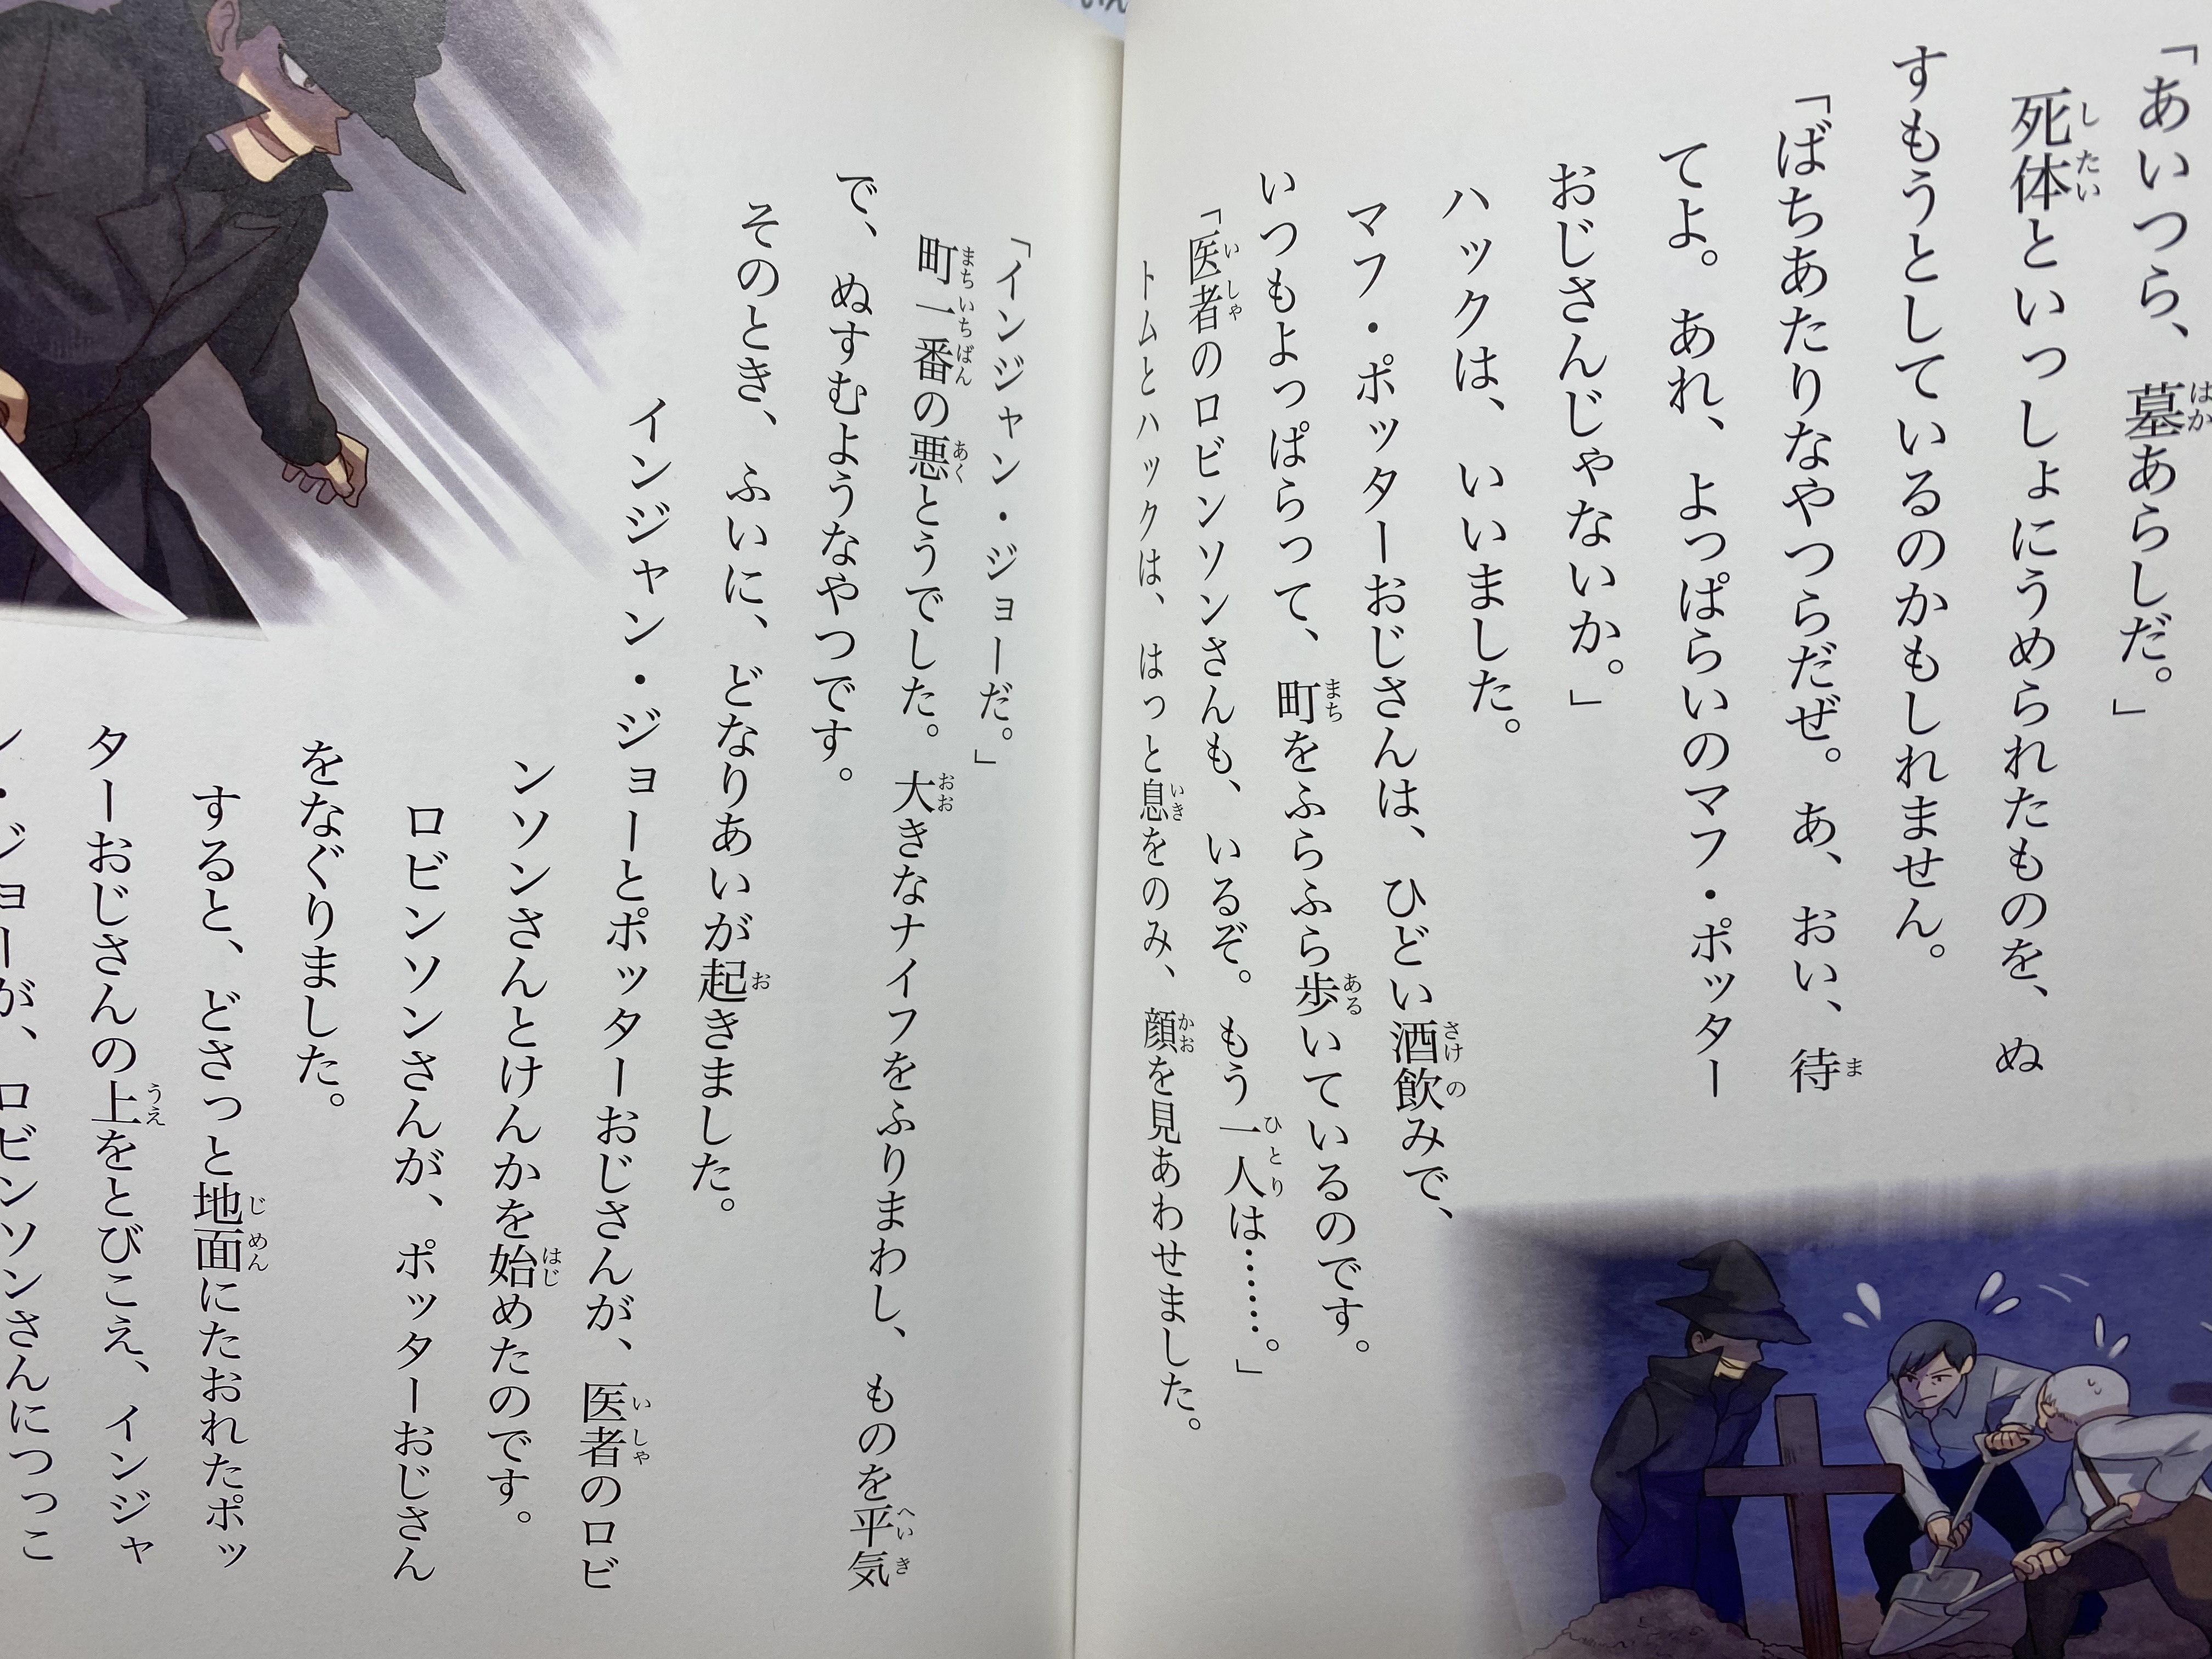 「あいつら、墓あらしだ。」
死体といっしょにうめられたものを、ぬ
すもうとしているのかもしれません。
「ばちあたりなやつらだぜ。あ、おい、待
てよ。あれ、よっぱらいのマフ・ポッター
おじさんじゃないか。」
ハックは、いいました。
マフ・ポッターおじさんは、ひどい酒飲みで、
いつもよっぱらって、町をふらふら歩いているのです。
「医者のロビンソンさんも、いるぞ。もう一人は……。」
トムとハックは、はっと息をのみ、顔を見あわせました。
「インジャン・ジョーだ。」
町一番の悪とうでした。大きなナイフをふりまわし、ものを平気
で、ぬすむようなやつです。
そのとき、ふいに、どなりあいが起きました。
インジャン・ジョーとポッターおじさんが、医者のロビ
ンソンさんとけんかを始めたのです。
ロビンソンさんが、ポッターおじさん
をなぐりました。
すると、どさっと地面にたおれたポッ
ターおじさんの上をとびこえ、インジャ
ン・ジョーが、ロビンソンさんにつっこ